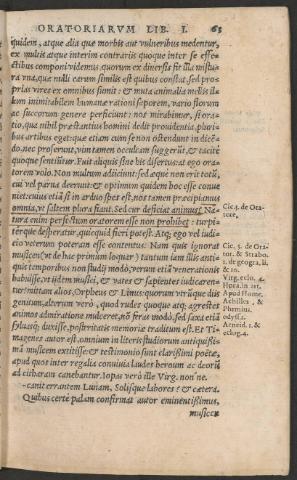 ORATORIARVM LIB. I. 65
quidem, atque alia quæ morbis aut vulneribus medentur,
ex multis atque interim contrariis quoque inter se effe-
ctibus componi videmus, quorum ex diuersis fit illa mistu-
ra vna, quæ nulli earum similis est quibus constat, sed pro-
prias vires ex omnibus sumit: & muta animalia mellis il-
lum inimitabilem humanæ rationi saporem, vario florum
ac succorum genere perficiunt: nos mirabimur, si ora-
tio, qua nihil præstantius homini dedit prouidentia, pluri-
bus artibus eget: quæ etiam cum se non ostendunt in dicẽ-
do, nec proferunt, vim tamen occulam suggerũt, & tacitè
quoque sentiũtur. Fuit aliquis sine his disertus: at ego ora-
torem volo. Non multum adiiciunt: sed æque non erit totũ,
cui vel parua deerunt: & optimum quidem hoc esse conue
niet: cuius etiã si in arduo spes est, nos tamen præcipiamus
omnia, vt saltem plura fiant. Sed cur deficiat animus? Na-
tura enim perfectum oratorem esse non prohibet: turpi-
térque desperatur, quicquid fieri potest. Atq; ego vel iudi-
cio veterum poteram esse contentus: Nam quis ignorat
musicen (vt de hac primum loquar) tantum iam illis anti-
quis temporibus non studij modò, verum etiã venerationis
habuisse, vt iidem musici, & vates & sapientes iudicaren-
tur: mittam alios, Orpheus & Linus: quorum vtrũque diis
genitum, alterum verò, quod rudes quoque atq; agrestes
animos admiratione mulceret, nõ feras modò, sed saxa etiã
syluasq; duxisse, posteritatis memoriæ traditum est. Et Ti-
magenes autor est omnium in literis studiorum antiquissi-
mã musicen extitisse: & testimonio sunt clarissimi poëtæ,
apud quos inter regalia conuiuia laudes heroum ac deorũ
ad citharam canebantur. Iopas verò ille Virg. non ne.
-canit errantem Lunam, Solísque labores: & cætera.
Quibus certè palam confirmat autor eminentissimus,
musicen
Cic. 3. de Ora-
tore,
Cic. 3. de Ora-
tor. & Strabo.